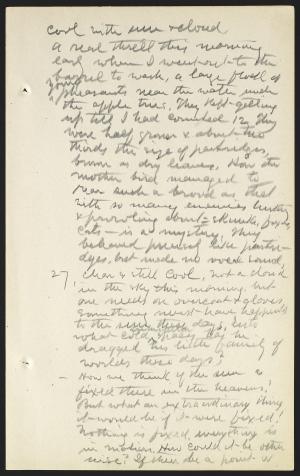 cool with sun & cloud
A real thrill this morning
early when I went out to the
barrel to wash, a large flock of
young
pheasants near the water under
the apple tree. They kept getting
up till I had counted 12. They
were half grown & about two
thirds the size of partridges,
brown as dry leaves. How the
mother bird managed to
rear such a brood as that
with so many enemies hunting
& prowling about – skunks, foxes,
cats – is a mystery. They
behaved precisely like partri-
dges, but made no sound.
27, Clear & still cool, not a cloud
in the sky this morning, but
one needs an overcoat & gloves,
something must have happened
to the sun these days. Into
what cold space has he
dragged his little family of
worlds these days?
— How we think of the sun as
fixed there in the heavens,
But what an extraordinary thing
it would be if it were fixed!
Nothing is fixed, everything is
in motion. How could it be other
wise? If there be a point